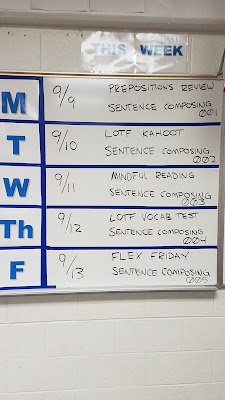 THIS WEEK
M 9/9 PREPOSITIONS REVIEW
SENTENCE COMPOSING
001
T 9/10 LOTF KAHOOT
SENTENCE COMPOSING
002
W 9/11 MINDFUL READING
SENTENCE COMPOSING
003
Th 9/12 LOTF VOCAB TEST
SENTENCE COMPOSING
004
F 9/13 FLEX FRIDAY
SENTENCE COMPOSING
005